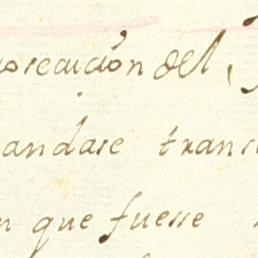 osecución del
andase trans
n que fuesse